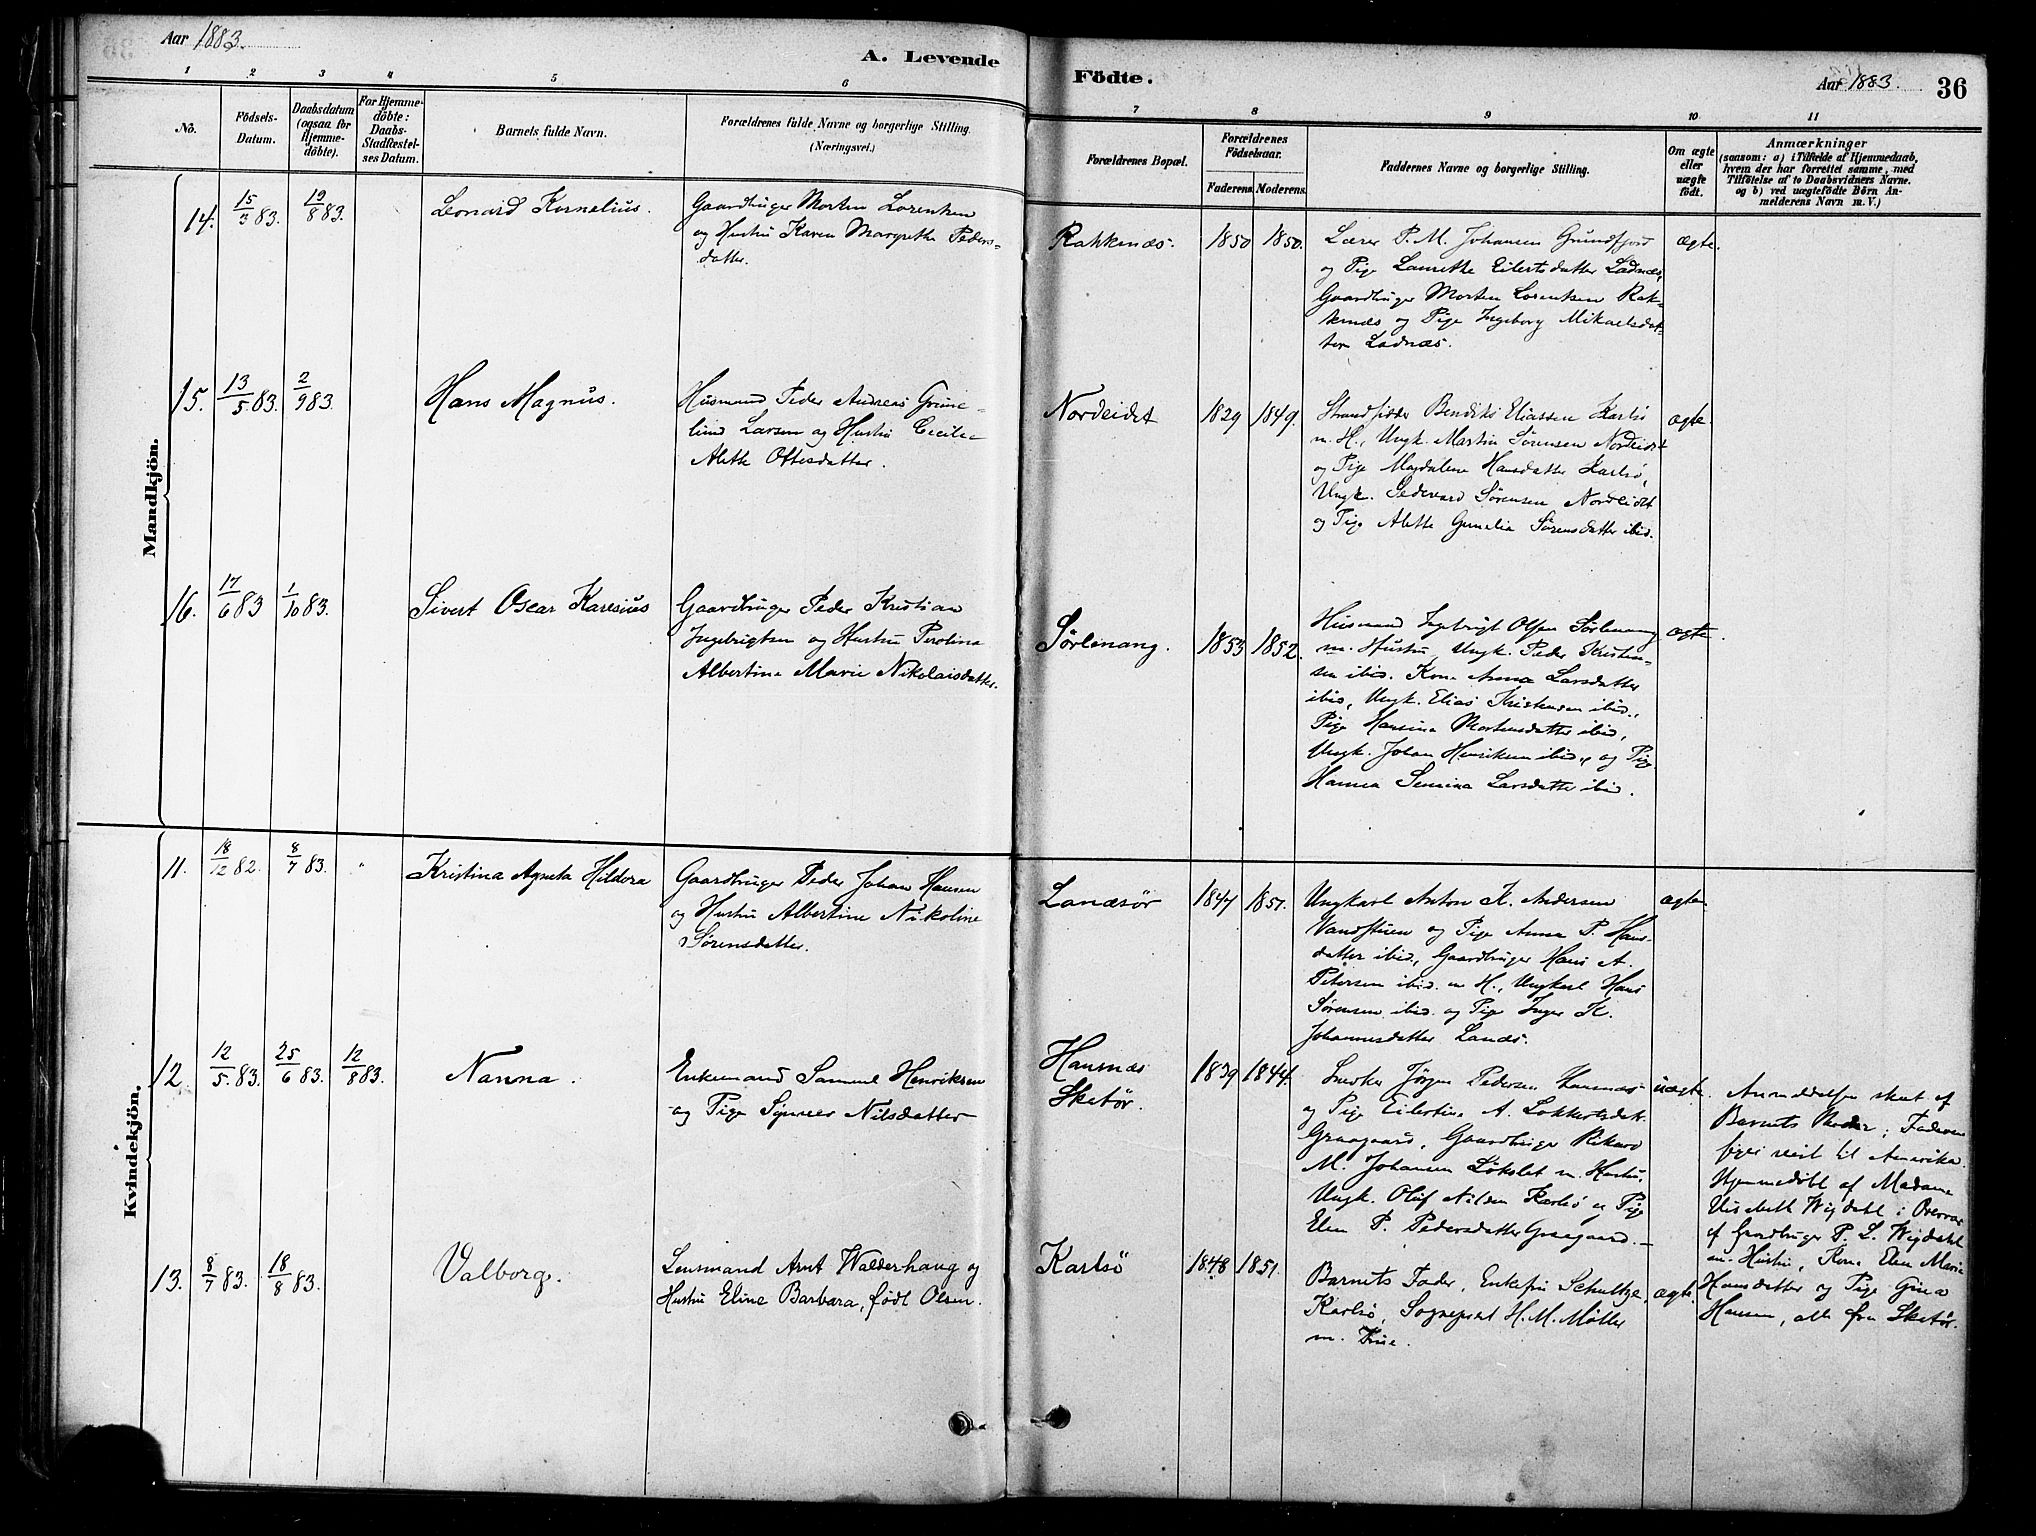 Aar 1883.
A. Levende
Födte.
Aar 1883.
36
1
2
3
4
5
6
7
8
9
10
11
No.
Födsels-
Datum.
Daabsdatum
(ogsaa for
Hjemme-
döbte).
For Hjemme-
döbte:
Daabs-
Stadfæstel-
ses Datum.
Barnets fulde Navn.
Forældrenes fulde Navne og borgerlige Stilling.
(Næringsvei.)
Forældrenes Bopæl.
Forældrenes
Födselsaar.
Faderens.
Moderens.
Faddernes Navne og borgerlige Stilling.
Om ægte
eller
uægte
födt.
Anmærkninger
(saasom: a) i Tilfælde af Hjemmedaab,
hvem der har forrettet samme, med
Tilföielse af to Daabsvidners Navne.
og b) ved uægtefödte Börn An-
melderens Navn m. V.)
Mandkjön.
14.
15/3 83.
19/8 83.
Leonard Kornelius.
Gaardbruger Morten Lorentsen
og Hustru Karen Margrethe Peders-
datter.
Rakkenæs.
1850
1850.
Lærer P. M. Johansen Grundfjord
og Pige Laurethe Eilertsdatter Ladnæs,
Gaardbruger Morten Lorentsen Rak-
kenæs og Pige Ingeborg Mikaelsdat-
ter Ladnæs.
ægte.
15.
13/5 83.
2/9 83.
Hans Magnus.
Husmand Peder Andreas Grøne-
lund Larsen og Hustru Cecilie
Alette Ottesdatter.
Nordeidet
1829
1849.
Strandsidder Bendiks Eliassen Karlsö
m. H., Ungk. Martin Sørensen Nordeidet
og Pige Magdalene Hansdatter Karlsö,
Ungk. Sedevard Sørensen Nordeidet
og Pige Alette Gunelia Sørensdatter ibid.
ægte.
16.
17/6 83
1/10 83.
Sivert Oscar Karesius
Gaardbruger Peder Kristian
Ingebrigtsen og Hustru Perolina
Albertine Marie Nikolaisdatter.
Sørlenang.
1853
1852.
Husmand Ingebrigt Olsen Sørlenang
m. Hustru, Ungk. Peder Kristen-
sen ibid. Kone Anna Larsdatter
ibid, Ungk. Elias Kristensen ibid.,
Pige Hansina Mortensdatter ibid,
Ungk. Johan Henriksen ibid., og Pige
Hanna Larsdatter ibid.
ægte.
Kvindekjön.
11.
18/12 82.
8/7 83.
"
Kristina Agneta Hildora
Gaardbruger Peder Johan Hansen
og Hustru Albertine Nikoline
Sørensdatter.
Lanæsør
1847
1851.
Ungkarl Anton K. Andersen
Vandstuen og Pige Anna P. Hans-
datter ibid., Gaardbruger Hans A.
Petersen ibid. m H., Ungkarl Hans
Sørensen ibid. og Pige Inger K.
Johannesdatter Lanæs.
ægte.
12.
12/5 83.
25/6 83.
12/8 83.
Nanna.
Enkemand Samuel Henriksen
og Pige Synneve Nilsdatter
Hansnæs
Skatør.
1839
1844.
Snedker Jørgen Pedersen Hansnæs
og Pige Eilertine A. Lokkertsdatt.
Graagaard, Gaardbruger Rikard
M. Johansen Løkslet m. Hustru,
Ungk. Oluf Nilsen Karlsö og Pige
Elen P. Pedersdatter Graagaard.
uægte.
Anmeldelsen skeet af
Barnets Moder; Faderen
reist til Amerika.
Hjemmedöbt af Madame
Elisabeth Wigdahl i Overvær
af Gaardbruger P. L. Wigdahl
m. Hustru, Kone Elen Marie
Hansdatter og Pige Gina
Hansen, alle fra Skatør.
13.
8/7 83.
18/8 83.
Valborg.
Lensmand Arnt Walderhaug og
Hustru Eline Barbara, født Olsen.
Karlsö
1848
1851.
Barnets Fader, Enkefru Schultze,
Karlsö, Sogneprest H. M. Møller
m. Frue.
ægte.